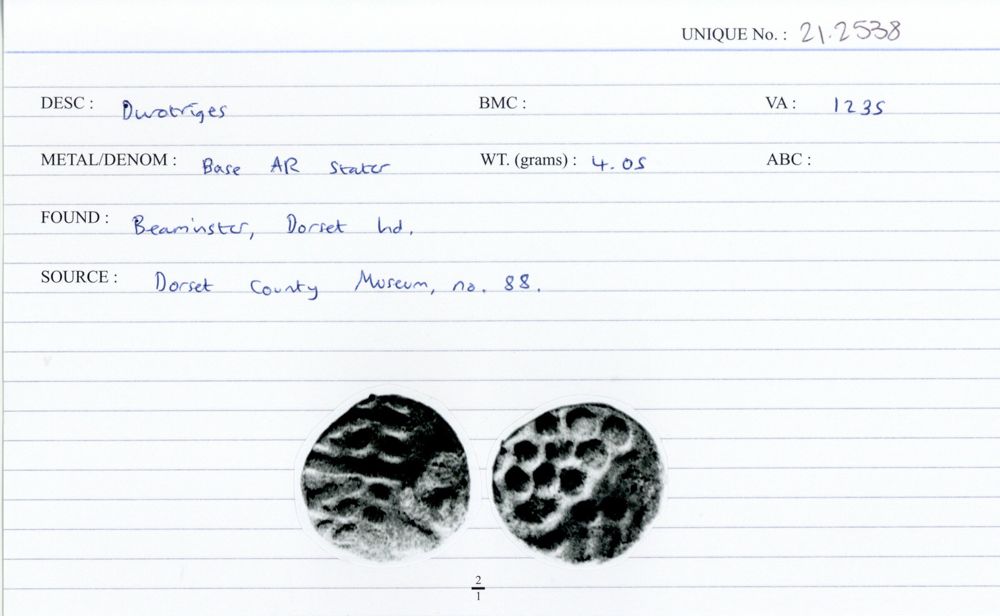 UNIQUE No. : 21.2538
DESC : Durotriges BMC : VA : 1235
METAL/DENOM : Base AR Stater WT. (grams) : 4.05 ABC :
FOUND : Beaminster, Dorset hd.
SOURCE : Dorset County Museum, no. 88.
2
1